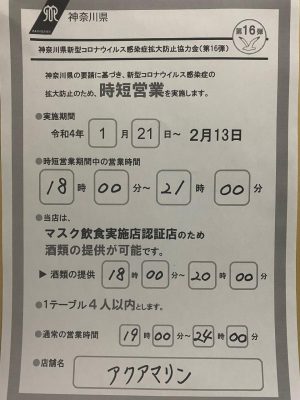 神奈川県
第16弾
神奈川県新型コロナウイルス感染症拡大防止協力金(第16弾)
神奈川県の要請に基づき、新型コロナウイルス感染症の
拡大防止のため、時短営業を実施します。
●実施期間
令和4年 1月 21日~ 2月13日
●時短営業期間中の営業時間
18時00分~21時00分
●当店は、
マスク飲食実施店認証店のため
酒類の提供が可能です。
▶酒類の提供 18時00分~20時00分
●1テーブル4人以内とします。
●通常の営業時間 19時00分~24時00分
●店舗名
アクアマリン